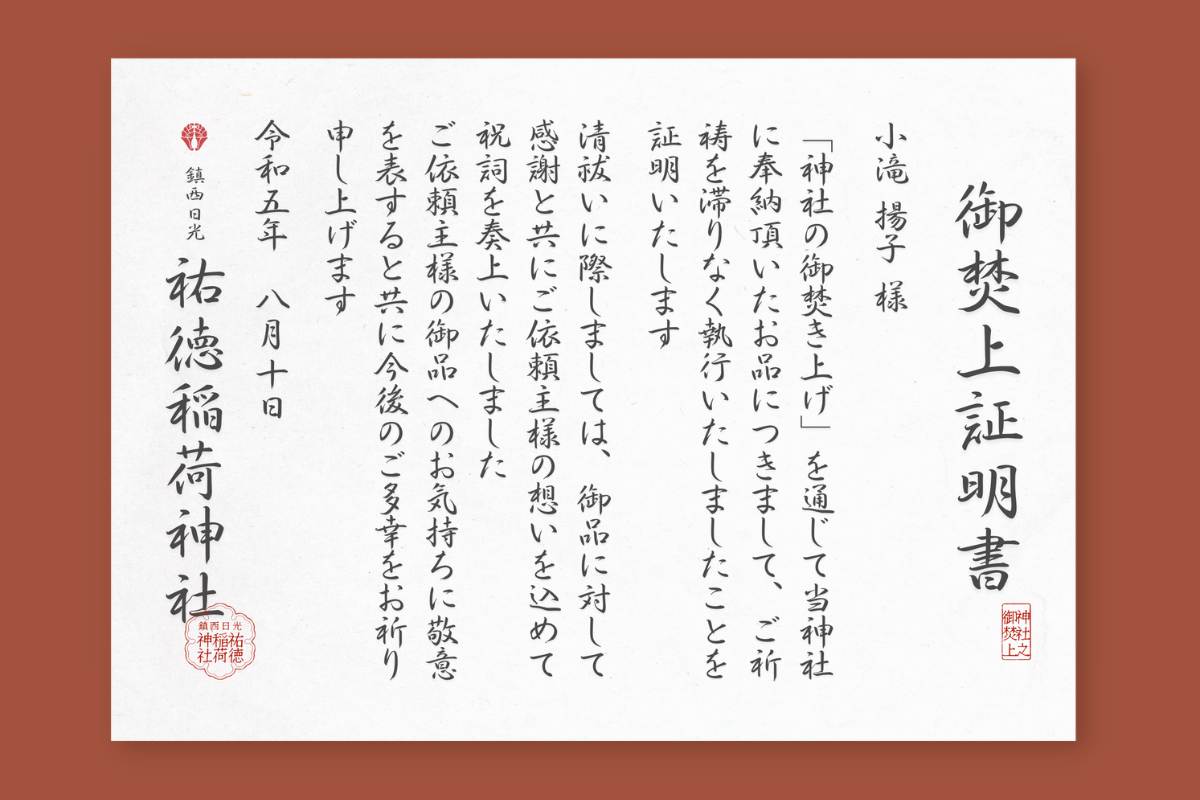 御焚上証明書
神社之
御焚上
小滝 揚子 様
「神社の御焚き上げ」を通じて当神社
に奉納頂いたお品につきまして、ご祈
祷を滞りなく執行いたしましたことを
証明いたします
清祓いに際しましては、御品に対して
感謝と共にご依頼主様の想いを込めて
祝詞を奏上いたしました
ご依頼主様の御品へのお気持ちに敬意
を表すると共に今後のご多幸をお祈り
申し上げます
令和五年 八月十日
鎮西日光
祐徳稲荷神社
鎮西日光
祐徳
稲荷
神社